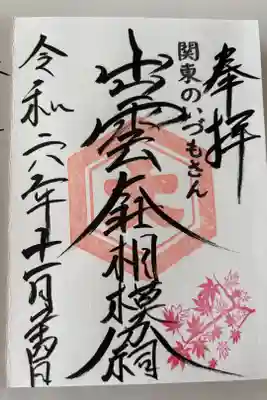 奉拝
関東のいづもさん
出雲大社相模分祠
令和六年十一月日